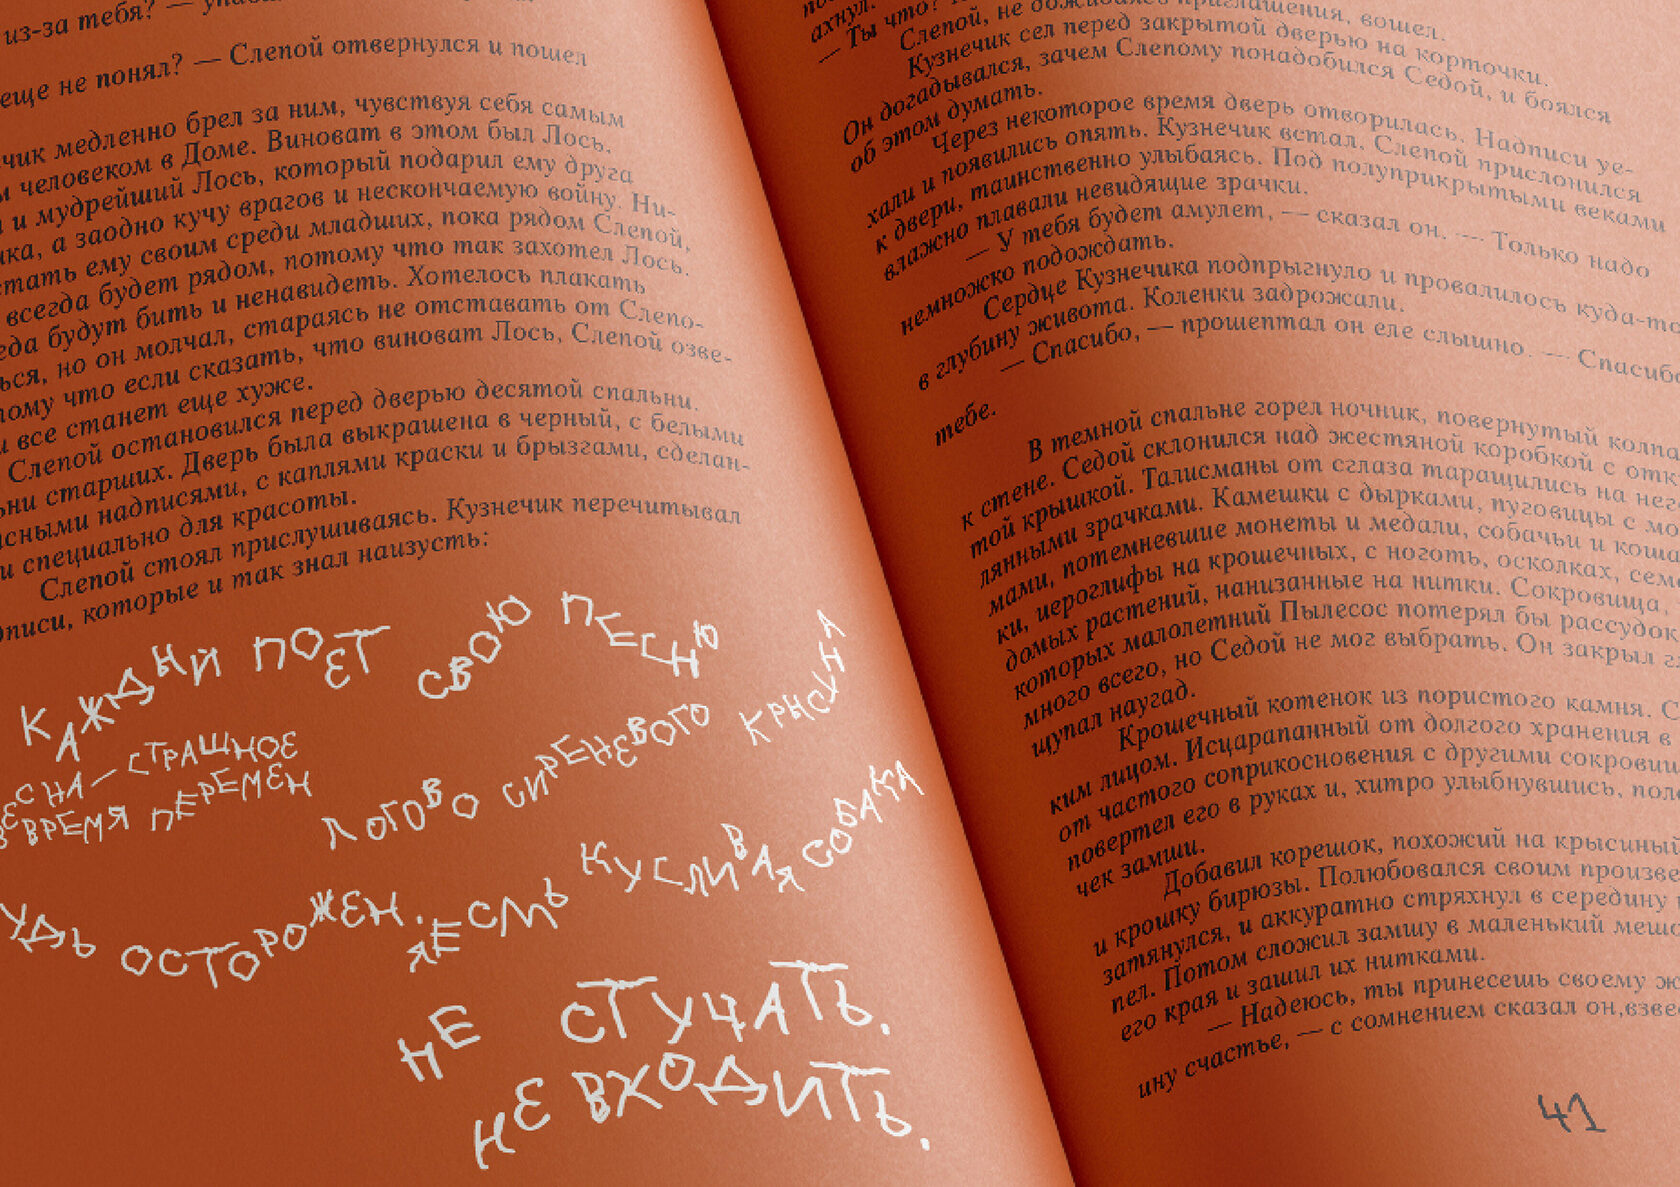 из-за тебя? —
еще не понял? — Слепой отвернулся и пошел
чик медленно брел за ним, чувствуя себя самым
м человеком в Доме. Виноват в этом был Лось.
и мудрейший Лось, который подарил ему друга
ика, а заодно кучу врагов и нескончаемую войну. Ни-
стать ему своим среди младших, пока рядом Слепой,
всегда будет рядом, потому что так захотел Лось.
егда будут бить и ненавидеть. Хотелось плакать
ься, но он молчал, стараясь не отставать от Слепо-
тому что если сказать, что виноват Лось, Слепой озве-
и все станет еще хуже.
Слепой остановился перед дверью десятой спальни.
ьни старших. Дверь была выкрашена в черный, с белыми
асными надписями, с каплями краски и брызгами, сделан-
и специально для красоты.
Слепой стоял прислушиваясь. Кузнечик перечитывал
дписи, которые и так знал наизусть:
КАЖДЫЙ ПОЕТ СВОЮ ПЕСНЮ
ВЕСНА — СТРАШНОЕ
ВРЕМЯ ПЕРЕМЕН
ЛОГОВО СИРЕНЕВОГО КРЫСУНА
УДЬ ОСТОРОЖЕН.
Я ЕСМЬ КУСЛИВАЯ СОБАКА
НЕ СТУЧАТЬ.
НЕ ВХОДИТЬ.
ахнул.
— Ты что?
Слепой, не дожидаясь приглашения, вошел.
Кузнечик сел перед закрытой дверью на корточки.
Он догадывался, зачем Слепому понадобился Седой, и боялся
об этом думать.
Через некоторое время дверь отворилась. Надписи уе-
хали и появились опять. Кузнечик встал. Слепой прислонился
к двери, таинственно улыбаясь. Под полуприкрытыми веками
влажно плавали невидящие зрачки.
— У тебя будет амулет, — сказал он. — Только надо
немножко подождать.
Сердце Кузнечика подпрыгнуло и провалилось куда-то
в глубину живота. Коленки задрожали.
— Спасибо, — прошептал он еле слышно. — Спасибо
тебе.
В темной спальне горел ночник, повернутый колпа
к стене. Седой склонился над жестяной коробкой с отк
той крышкой. Талисманы от сглаза таращились на нег
лянными зрачками. Камешки с дырками, пуговицы с мо
мами, потемневшие монеты и медали, собачьи и коша
ки, иероглифы на крошечных, с ноготь, осколках, сем
домых растений, нанизанные на нитки. Сокровища,
которых малолетний Пылесос потерял бы рассудок
много всего, но Седой не мог выбрать. Он закрыл гл
щупал наугад.
Крошечный котенок из пористого камня. С
ким лицом. Исцарапанный от долгого хранения в
от частого соприкосновения с другими сокровищ
повертел его в руках и, хитро улыбнувшись, поло
чек замши.
Добавил корешок, похожий на крысиный
и крошку бирюзы. Полюбовался своим произве
затянулся, и аккуратно стряхнул в середину
пел. Потом сложил замшу в маленький мешо
его края и зашил их нитками.
— Надеюсь, ты принесешь своему ж
ину счастье, — с сомнением сказал он,взве
41